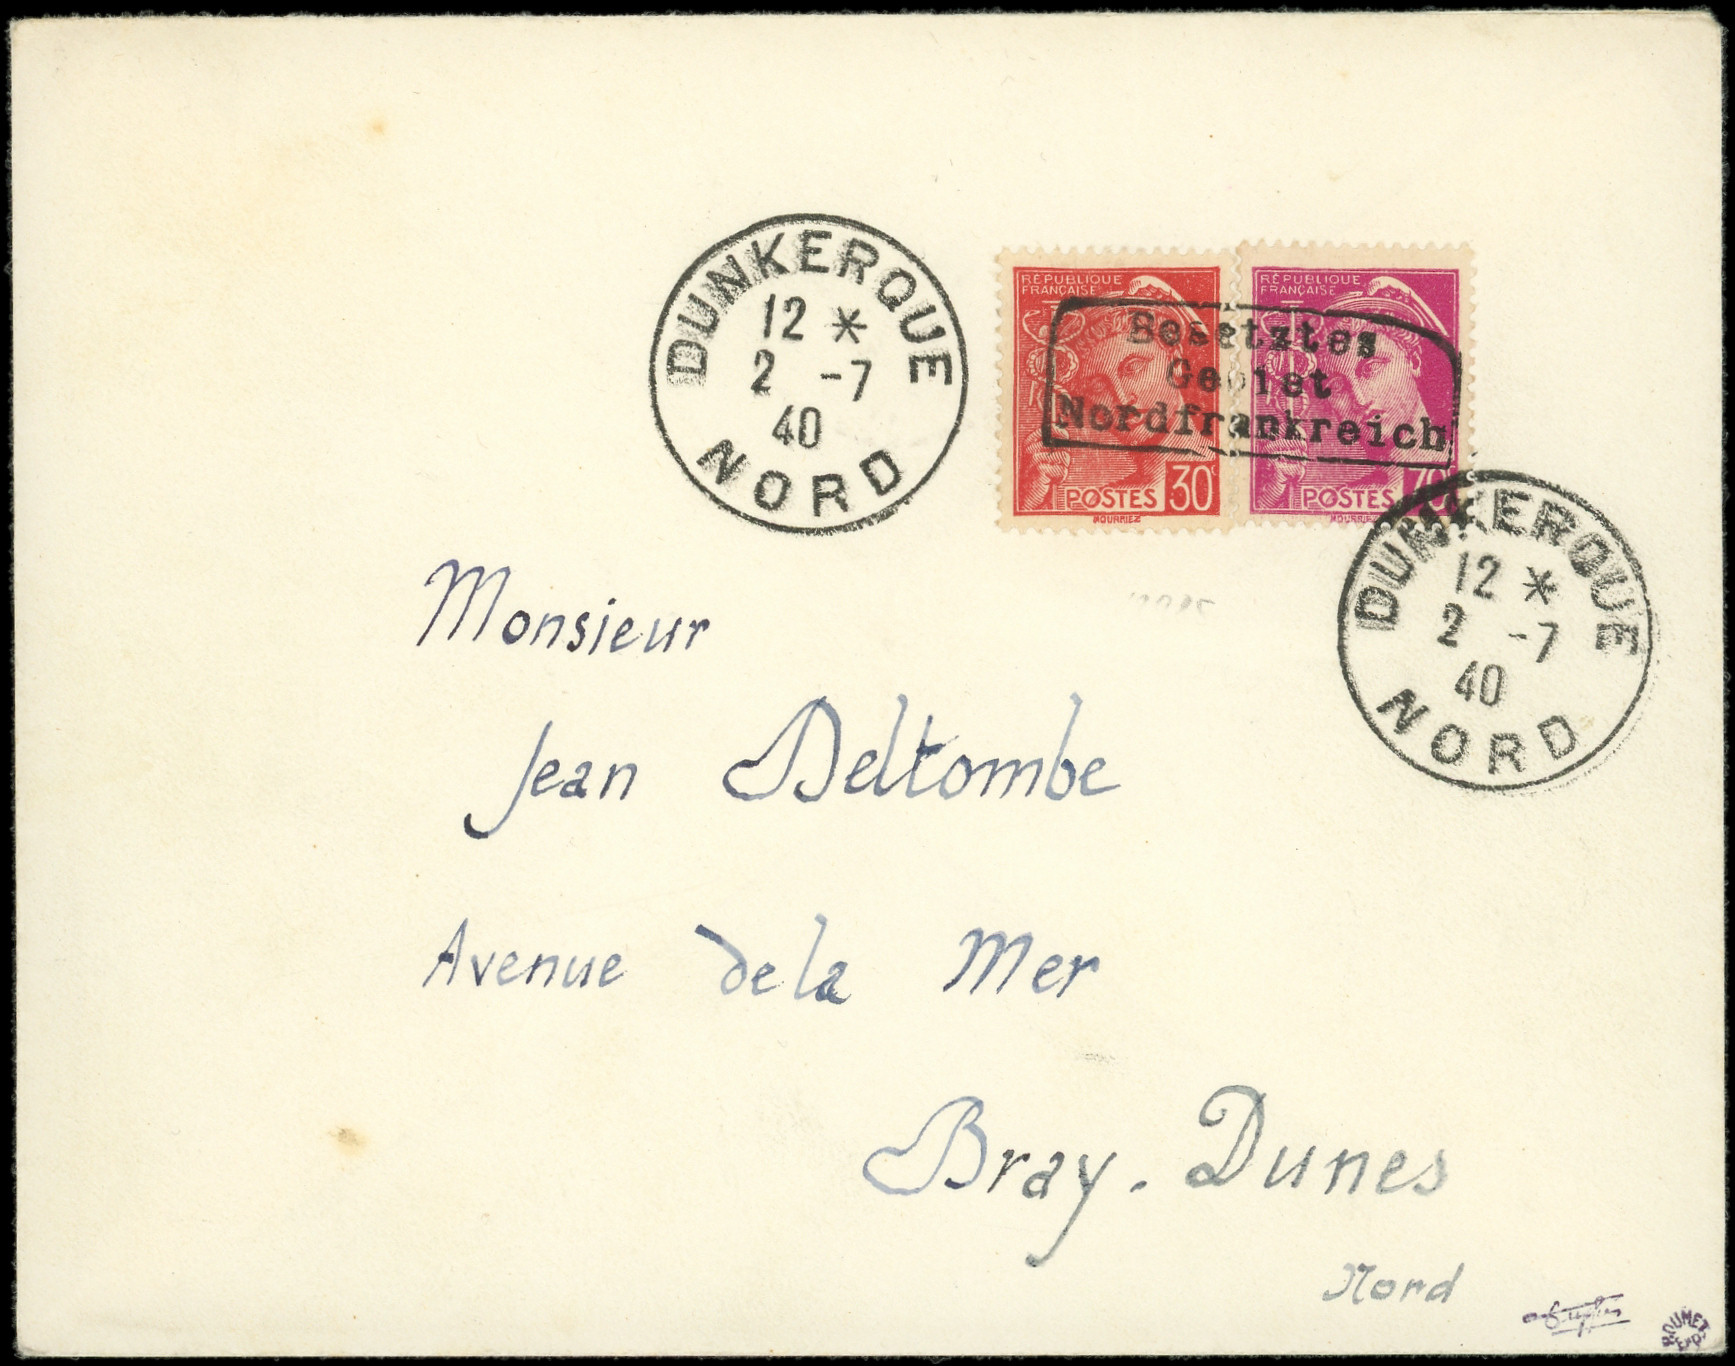 DUNKERQUE
12 *
2 -7
40
NORD
RÉPUBLIQUE
FRANÇAISE
POSTES 30c
MOURRIEZ
RÉPUBLIQUE
FRANÇAISE
POSTES 70c
MOURRIEZ
Besetztes
Gebiet
Nordfrankreich
DUNKERQUE
12 *
2 -7
40
NORD
Monsieur
Jean Deltombe
Avenue de la Mer
Bray-Dunes
Nord
ROUMET